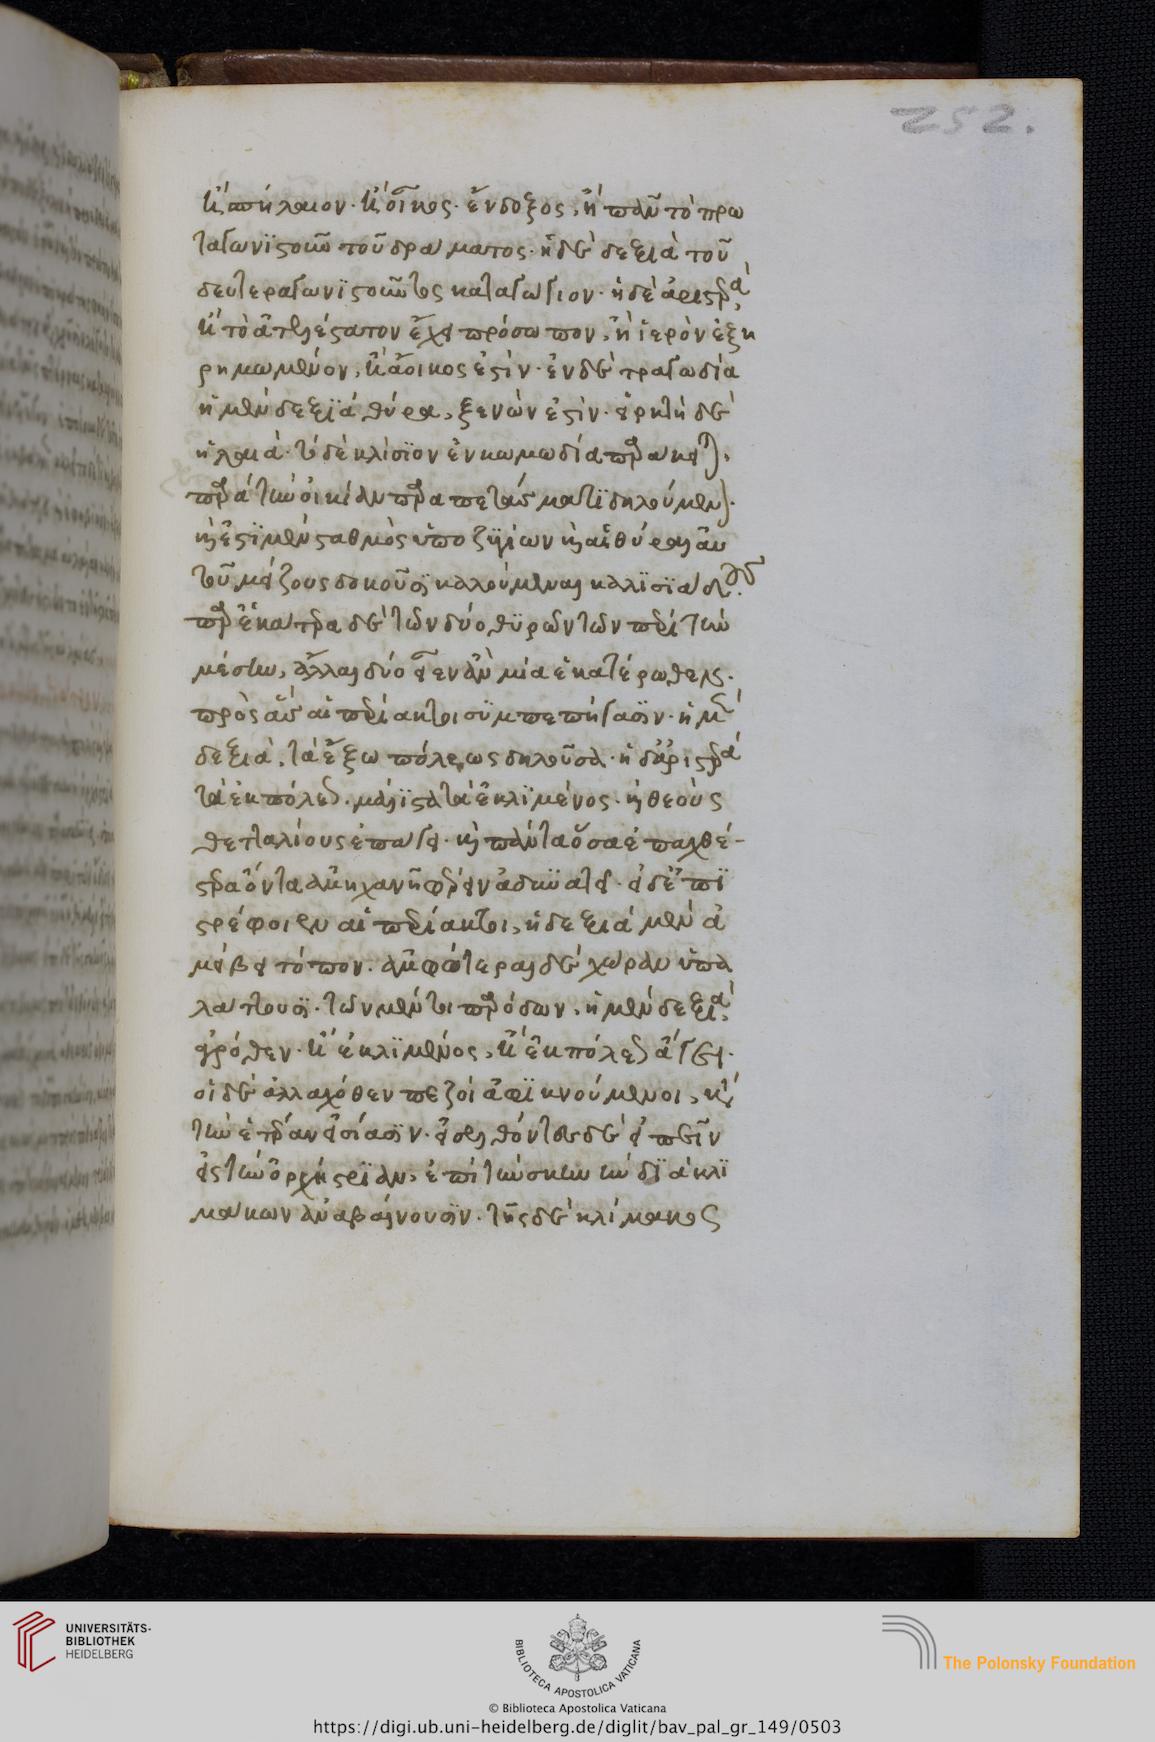 252.
ἢ σπήλαιον. ἢ οἶκος. ἔνδοξος, ἢ πᾶν τὸ πρω
ταγωνϊστοῦν τοῦ δράματος. ἡ δὲ δεξιὰ τοῦ
δευτεραγωνϊστοῦντος καταγώγιον. ἡ δὲ ἀριστερὰ,
ἢ τὸ ἀτελέστατον ἔχει πρόσωπον, ἢ ἱερὸν ἐξη
ρημωμένον, ἢ ἄοικος ἐστίν. ἐν δὲ τραγωδία
ἡ μὲν δεξϊὰ θύρα, ξενών ἐστίν. εἱρκτὴ δὲ
ἡ λαιά. τὸ δὲ κλίσϊον ἐν κωμωδία παράκειται,
παρὰ τὴν οἰκίαν παραπετάσματϊ δηλούμενον.
καὶ ἔστϊ μὲν σταθμὸς ὑποζϋγίων καὶ αἱ θύραι αὐ
τοῦ μείζους δοκοῦσϊ καλούμεναι κλϊσϊάδες.
παρ' ἑκάτερα δὲ τῶν δύο θϋρῶν τῶν περὶ τὴν
μέσην, ἄλλαι δύο εἶεν ἂν μία ἑκατέρωθεν.
πρὸς ἃς αἱ περίακτοι σϋμπεπήγασϊν. ἡ μὲν
δεξιὰ, τὰ ἔξω πόλεως δηλοῦσα. ἡ δ' ἀριστερὰ
τὰ ἐκ πόλεως. μάλϊστα τὰ ἐκ λϊμένος. καὶ θεοὺς
θετταλίους ἐπάγει. καὶ πάντα ὅσα ἐπαχθέ-
στερα ὄντα ἀμηχανῆ φέρειν ἀδυνατεῖ. εἰ δὲ ἐπϊ
στρέφοιεν αἱ περίακτοι, ἡ δεξιὰ μὲν ἀ
μείβει τόπον. ἀμφότεραι δὲ χώραν ὑπα
λάττουσϊ. τῶν μέντοι παρόδων, ἡ μὲν δεξιὰ,
ἀγρόθεν. ἢ ἐκ λϊμένος, ἢ ἐκ πόλεως ἄγει.
οἱ δὲ ἀλλαχόθεν πεζοὶ ἀφϊκνούμενοι, κατὰ
τὴν ἑτέραν εἰσίασϊν. εἰσελθόντες δὲ
εἰς τὴν ὀρχήστραν, ἐπὶ τὴν σκηνὴν δϊὰ κλϊ
μάκων ἀναβαίνουσϊν. τῆς δὲ κλίμακος
UNIVERSITÄTS-
BIBLIOTHEK
HEIDELBERG
BIBLIOTECA APOSTOLICA VATICANA
© Biblioteca Apostolica Vaticana
The Polonsky Foundation
https://digi.ub.uni-heidelberg.de/diglit/bav_pal_gr_149/0503